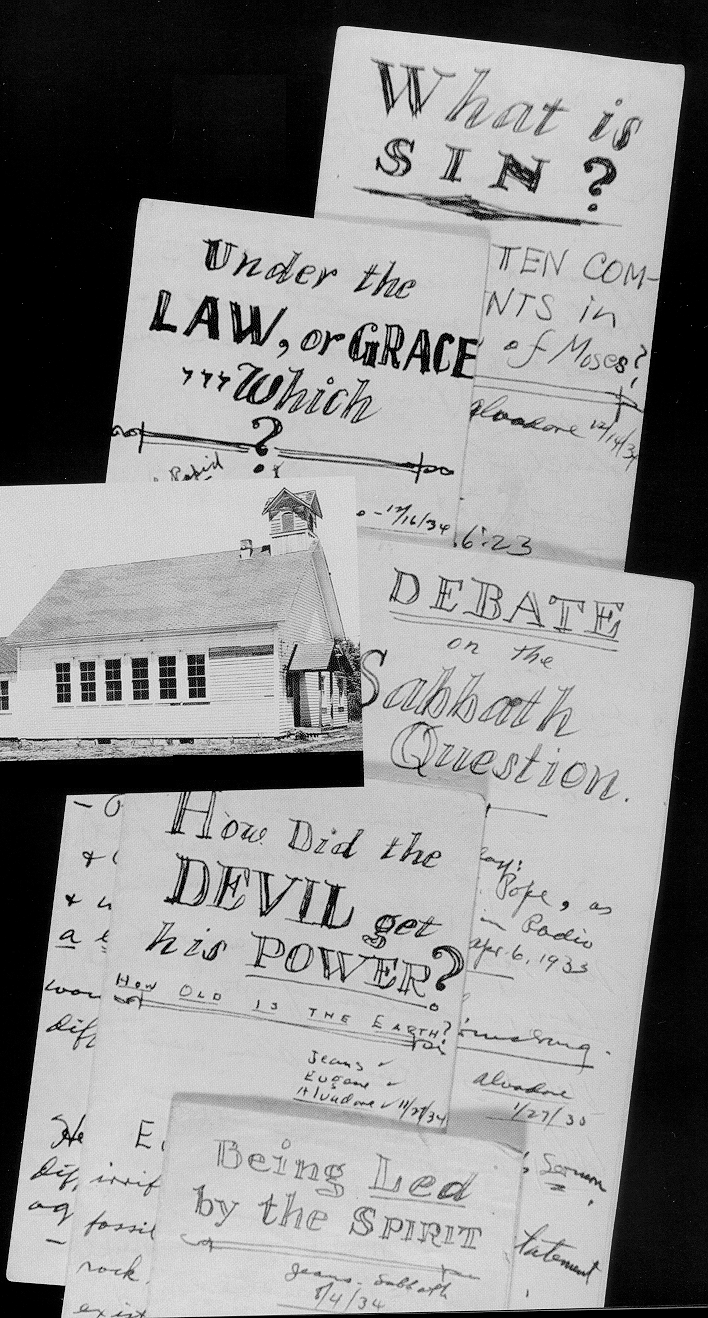 What is
SIN?
TEN COM-
NTS in
of Moses?
Alvadore 12/14/34
Under the
LAW, or GRACE
,,,Which
?
Rapid
- 12/16/34
6:23
DEBATE
on the
Sabbath
Question.
Pope, as
in Radio
Apr. 6, 1935
mstrong.
Alvadore
1/27/35
Sermon
tatement
How Did the
DEVIL get
his POWER?
HOW OLD IS THE EARTH?
Jeans ✓
Eugene ✓
Alvadore ✓ 11/27/34
- O
a
wou
diff
He
diff
ag
E
irrif
fossil
rock
exist
Being Led
by the SPIRIT
Jeans - Sabbath
8/4/34